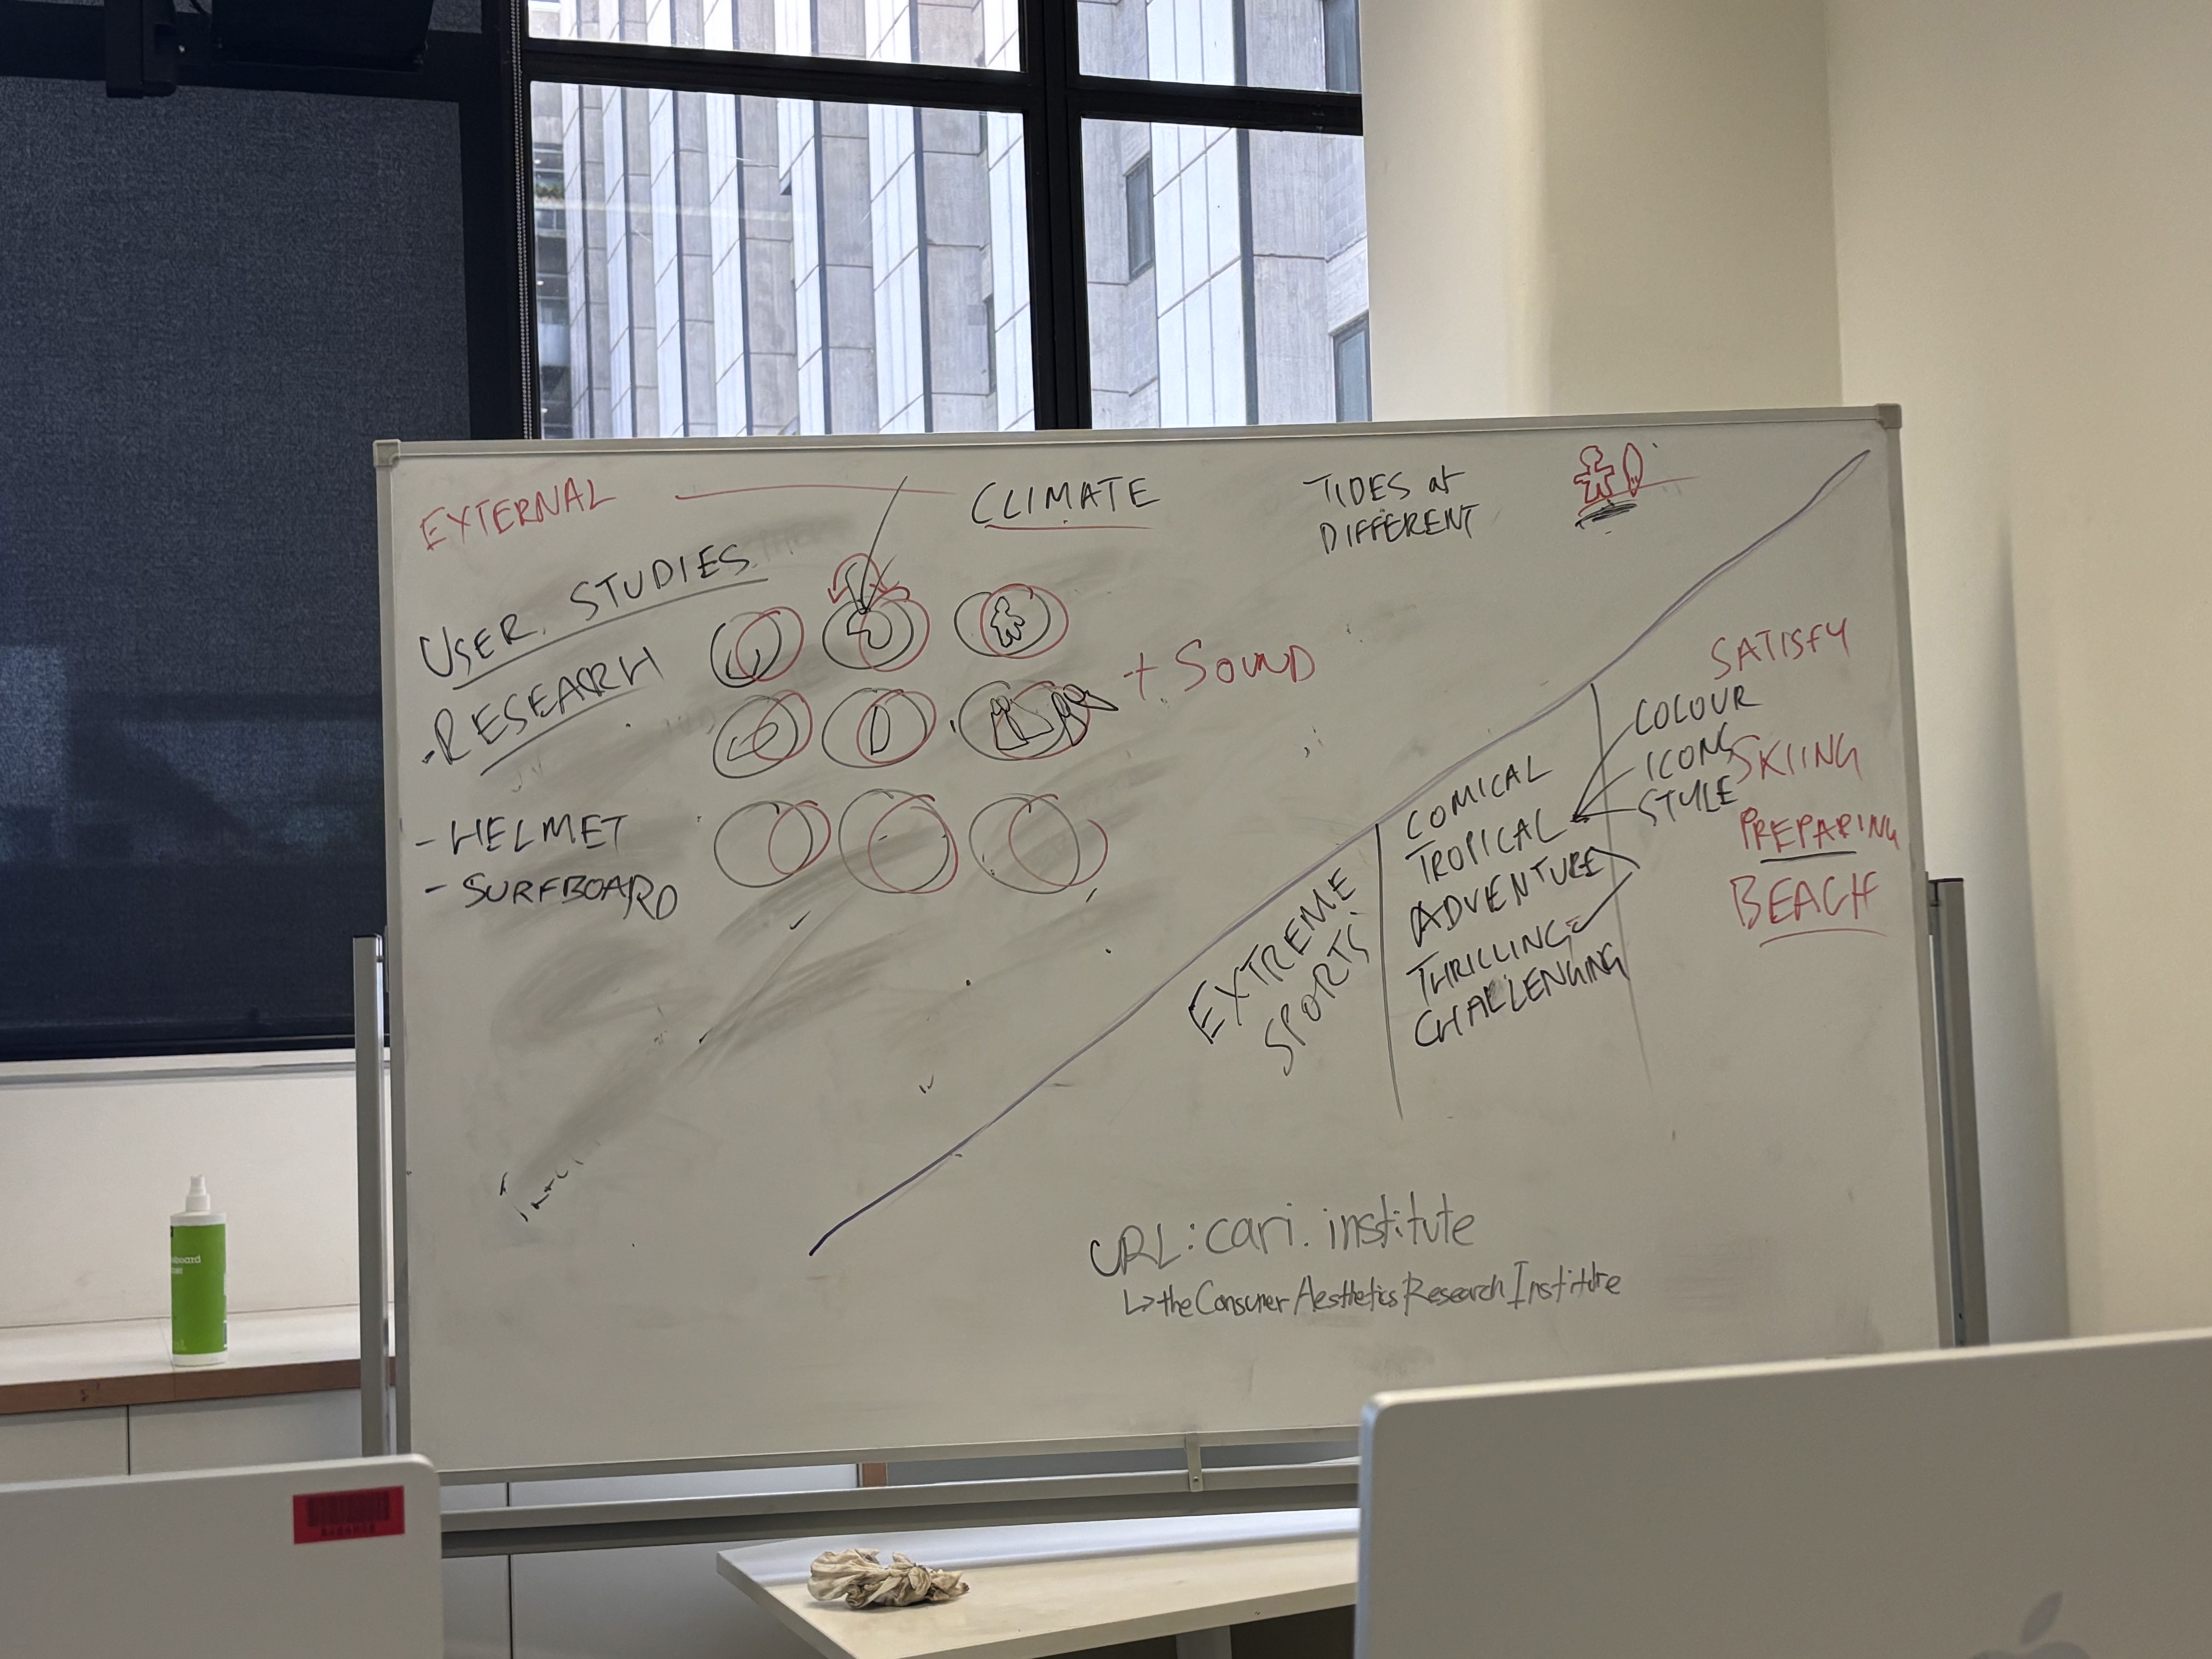 EXTERNAL
CLIMATE
TIDES at
DIFFERENT
USER STUDIES
-RESEARCH
+ SOUND
- HELMET
- SURFBOARD
EXTREME
SPORTS
COMICAL
TROPICAL
ADVENTURE
THRILLING
CHALLENGING
COLOUR
ICONS
STYLE
SATISFY
SKIING
PREPARING
BEACH
URL: cari.institute
↳ the Consumer Aesthetics Research Institute